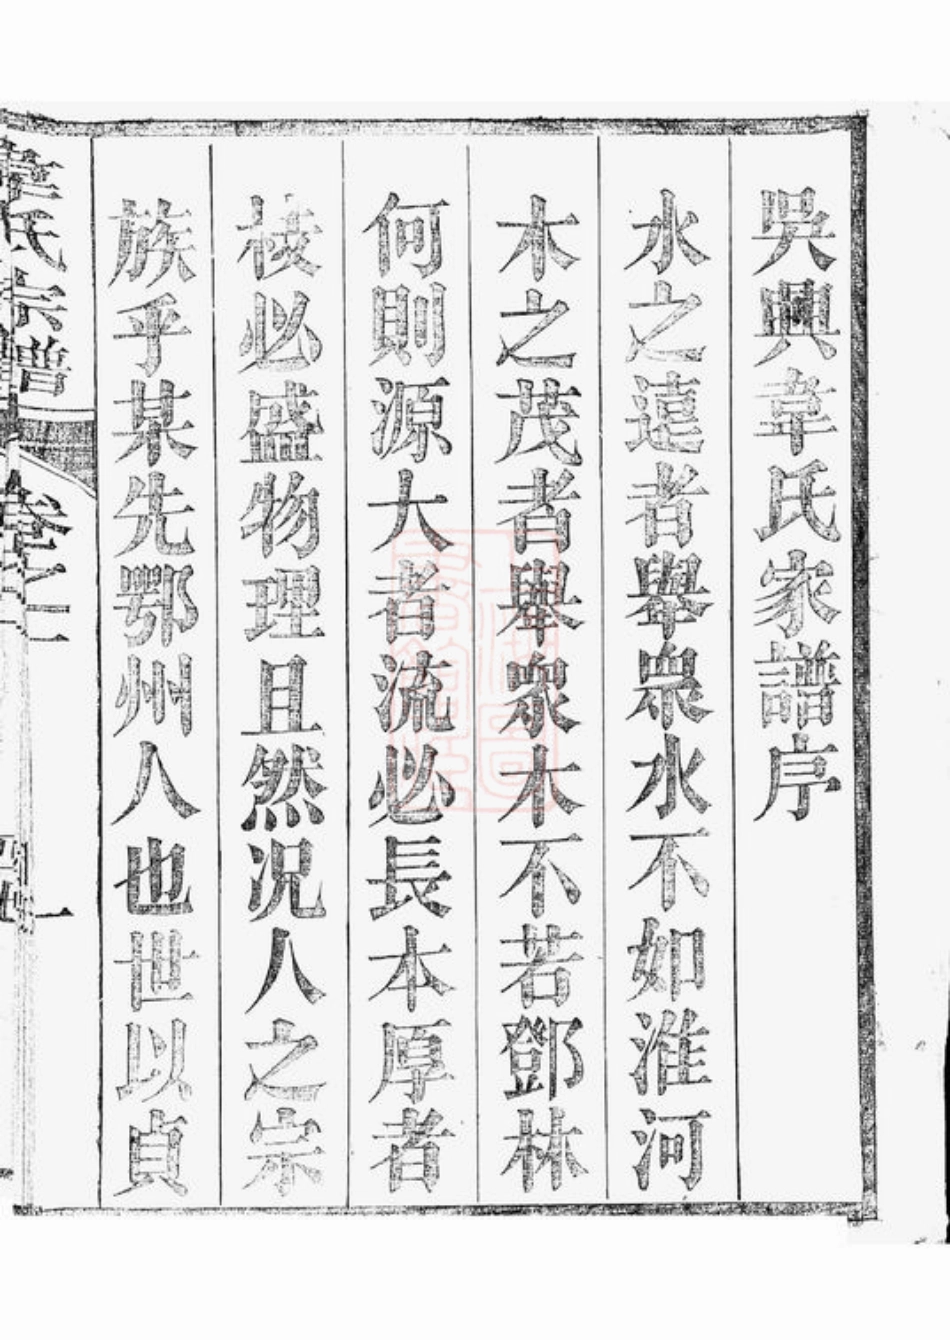 吳興韋氏家譜序
水之遠者舉眾水不如淮河
木之茂者舉眾木不若鄧林
何則源大者流必長本厚者
枝必盛物理且然況人之宗
族乎某先鄂州人也世以貞
韋氏宗譜
卷之二